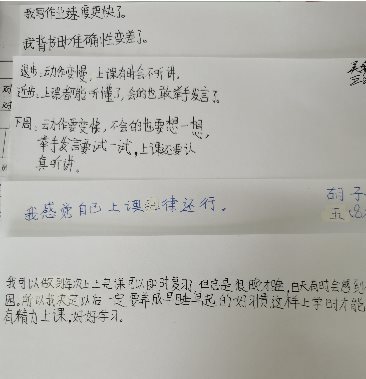 我写作业速度变快了。
我背书的准确性变差了。
退步:动作变慢,上课有时会不听讲,
进步:上课都能听懂了,会的也敢举手发言了。
下周:动作要变快,不会的也要想一想,
举手发言要试一试,上课还要认
真听讲。
我感觉自己上课纪律还行。
胡子
五
我可以做到每次上完课可以即时复习,但总是很晚才睡,白天有时会感到
困。所以我决定以后一定要养成早睡早起的好习惯,这样上学时才能
有精力上课,好好学习。